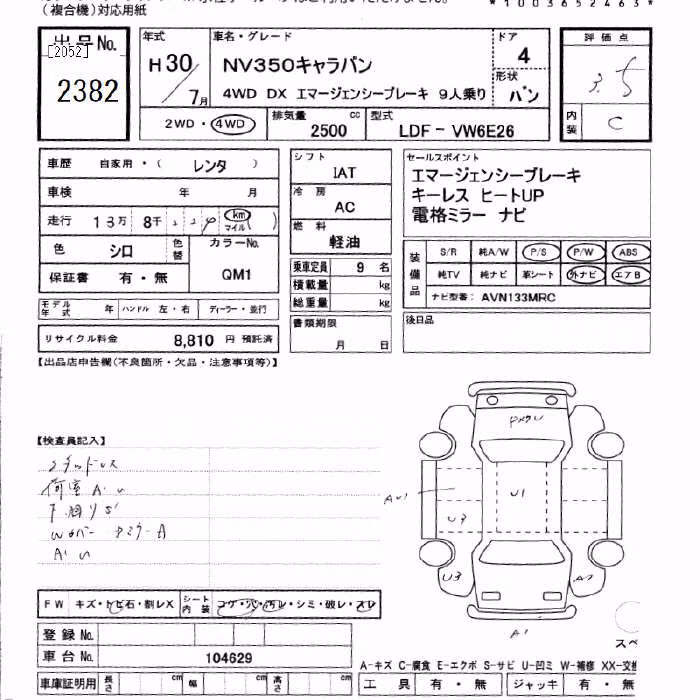 (複合機)対応用紙
*1003652463*
出品No.
[2052]
2382
年式
H30
7月
車名・グレード
NV350キャラバン
4WD DX エマージェンシーブレーキ 9人乗り
ドア
4
形状
バン
評価点
3.5
内装
C
2WD・4WD
排気量
2500 cc
型式
LDF-VW6E26
車歴
自家用・( レンタ )
車検
年 月
走行
13万 8千
km
マイル
色
シロ
色替
カラーNo.
QM1
保証書
有・無
モデル年式
年
ハンドル 左・右
ディーラー・並行
リサイクル料金
8,810 円 預託済
シフト
IAT
冷房
AC
燃料
軽油
乗車定員
9 名
積載量
kg
総重量
kg
書類期限
月 日
セールスポイント
エマージェンシーブレーキ
キーレス ヒートUP
電格ミラー ナビ
装備品
S/R 純A/W P/S P/W ABS
純TV 純ナビ 革シート 外ナビ エアB
ナビ型番: AVN133MRC
後日品
【出品店申告欄(不良箇所・欠品・注意事項等)】
【検査員記入】
荷室 A・U
A・U
AU1
U1
U3
U3
A1
FW
キズ・トビ石・割レX
シート内装
コゲ・穴・汚レ・シミ・破レ・スレ
登録No.
車台No.
104629
車庫証明用
長さ cm
幅 cm
高さ cm
スペ
A-キズ C-腐食 E-エクボ S-サビ U-凹ミ W-補修 XX-交換
工具 有・無
ジャッキ 有・無